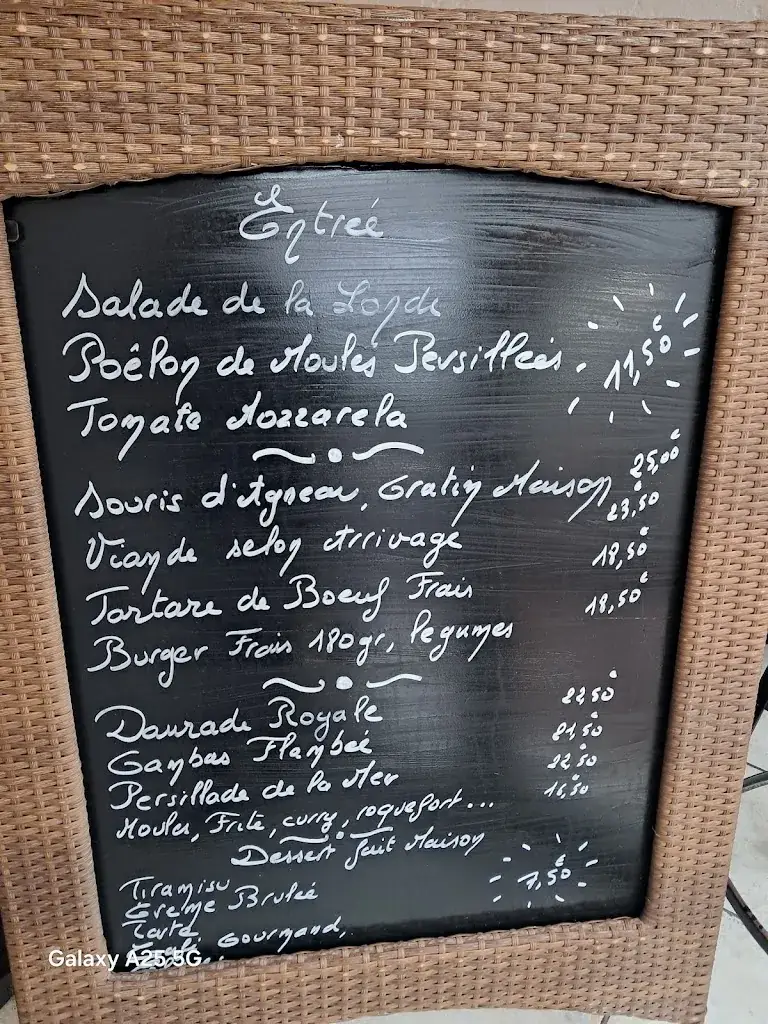 Entreé
Salade de la Londe
Poêlon de Moules Persillées. 11,50€
Tomate Mozzarela
Souris d'Agneau, Gratin Maison 25,00€
Viande selon Arrivage 23,50
Tartare de Boeuf Frais 18,50€
Burger Frais 180gr, legumes 18,50€
Daurade Royale 22,50
Gambas Flambeé 21,50
Persillade de la Mer 22,50
Moules, Frite, curry, roquefort... 16,50
Dessert fait Maison
Tiramisu 7,50€
Creme Bruleé
Tarte
Gourmand,
Galaxy A25 5G